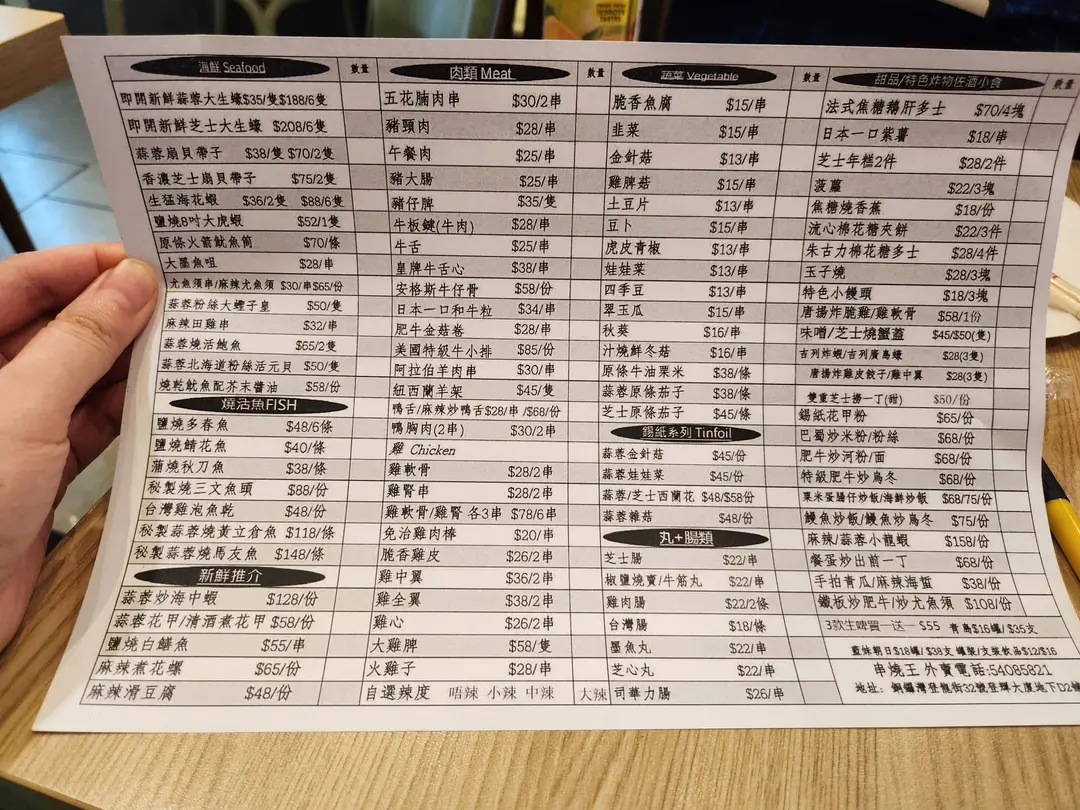 海鮮 Seafood
數量
即開新鮮蒜蓉大生蠔$35/隻$188/6隻
即開新鮮芝士大生蠔 $208/6隻
蒜蓉扇貝帶子 $38/隻 $70/2隻
香濃芝士扇貝帶子 $75/2隻
生猛海花蝦 $36/2隻 $88/6隻
鹽燒8吋大虎蝦 $52/1隻
原條火箭魷魚筒 $70/條
大墨魚咀 $28/串
尤魚須串/麻辣尤魚須 $30/串$65/份
蒜蓉粉絲大蟶子皇 $50/隻
麻辣田雞串 $32/串
蒜蓉燒活鮑魚 $65/2隻
蒜蓉北海道粉絲活元貝 $50/隻
燒乾魷魚配芥末醬油 $58/份
燒活魚FISH
鹽燒多春魚 $48/6條
鹽燒鯖花魚 $40/條
蒲燒秋刀魚 $38/條
秘製燒三文魚頭 $88/份
台灣雞泡魚乾 $48/份
秘製蒜蓉燒黃立倉魚 $118/條
秘製蒜蓉燒馬友魚 $148/條
新鮮推介
蒜蓉炒海中蝦 $128/份
蒜蓉花甲/清酒煮花甲 $58/份
鹽燒白鱔魚 $55/串
麻辣煮花螺 $65/份
麻辣滑豆腐 $48/份
肉類 Meat
數量
五花腩肉串 $30/2串
豬頸肉 $28/串
午餐肉 $25/串
豬大腸 $25/串
豬仔脾 $35/隻
牛板鍵(牛肉) $28/串
牛舌 $25/串
皇牌牛舌心 $38/串
安格斯牛仔骨 $58/份
日本一口和牛粒 $34/串
肥牛金菇卷 $28/串
美國特級牛小排 $85/份
阿拉伯羊肉串 $30/串
紐西蘭羊架 $45/隻
鴨舌/麻辣炒鴨舌$28/串 /$68/份
鴨胸肉(2串) $30/2串
雞 Chicken
雞軟骨 $28/2串
雞腎串 $28/2串
雞軟骨/雞腎 各3串 $78/6串
免治雞肉棒 $20/串
脆香雞皮 $26/2串
雞中翼 $36/2串
雞全翼 $38/2串
雞心 $26/2串
大雞脾 $58/隻
火雞子 $28/串
自選辣度 唔辣 小辣 中辣 大辣
蔬菜 Vegetable
數量
脆香魚腐 $15/串
韭菜 $15/串
金針菇 $13/串
雞脾菇 $15/串
土豆片 $13/串
豆卜 $15/串
虎皮青椒 $13/串
娃娃菜 $13/串
四季豆 $13/串
翠玉瓜 $15/串
秋葵 $16/串
汁燒鮮冬菇 $16/串
原條牛油粟米 $38/條
蒜蓉原條茄子 $38/條
芝士原條茄子 $45/條
錫紙系列 Tinfoil
蒜蓉金針菇 $45/份
蒜蓉娃娃菜 $45/份
蒜蓉/芝士西蘭花 $48/$58份
蒜蓉雜菇 $48/份
丸+腸類
芝士腸 $22/串
椒鹽燒賣/牛筋丸 $22/串
雞肉腸 $22/2條
台灣腸 $18/條
墨魚丸 $22/串
芝心丸 $22/串
司華力腸 $26/串
甜品/特色炸物佐酒小食
數量
法式焦糖鵝肝多士 $70/4塊
日本一口紫薯 $18/串
芝士年糕2件 $28/2件
菠蘿 $22/3塊
焦糖燒香蕉 $18/份
流心棉花糖夾餅 $22/3件
朱古力棉花糖多士 $28/4件
玉子燒 $28/3塊
特色小饅頭 $18/3塊
唐揚炸脆雞/雞軟骨 $58/1份
味噌/芝士燒蟹蓋 $45/$50(隻)
吉列炸蝦/吉列廣島蠔 $28(3隻)
唐揚炸雞皮餃子/雞中翼 $28(3隻)
雙重芝士撈一丁(甜) $50/份
錫紙花甲粉 $65/份
巴蜀炒米粉/粉絲 $68/份
肥牛炒河粉/面 $68/份
特級肥牛炒烏冬 $68/份
粟米蛋腸仔炒飯/海鮮炒飯 $68/75/份
鰻魚炒飯/鰻魚炒烏冬 $75/份
麻辣/蒜蓉小龍蝦 $158/份
餐蛋炒出前一丁 $68/份
手拍青瓜/麻辣海蜇 $38/份
鐵板炒肥牛/炒尤魚須 $108/份
3款生啤買一送一 $55 青島$16罐/ $35支
藍妹朝日$18罐/ $38支 罐裝/支裝飲品$12/$16
串燒王 外賣電話:54085821
地址: 銅鑼灣登龍街32號登輝大廈地下D2舖